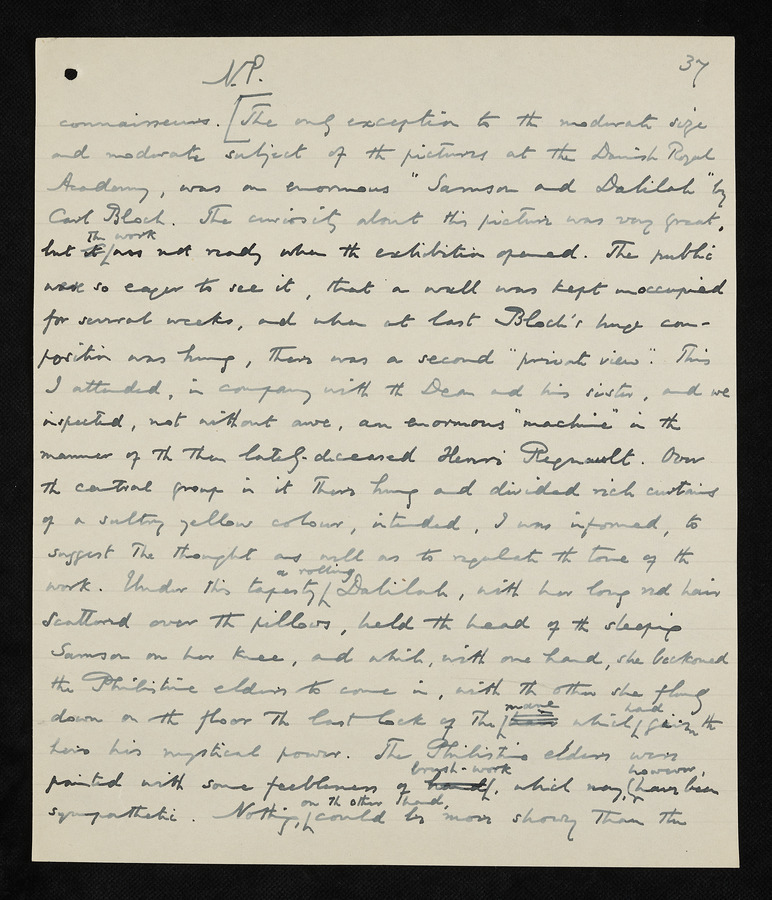 N.P. 37
connaisseurs. [The only exception to the moderate size
and moderate subject of the pictures at the Danish Royal
Academy, was an enormous "Samson and Dalilah" by
Carl Bloch. The curiosity about this picture was very great,
but it the work was not ready when the exhibition opened. The public
were so eager to see it, that a wall was kept unoccupied
for several weeks, and when at last Bloch's huge com-
position was hung, there was a second "private view". This
I attended, in company with the Dean and his sister, and we
inspected, not without awe, an enormous "machine" in the
manner of the then lately-deceased Henri Regnault. Over
the central group in it there hung and divided rich curtains
of a sultry yellow colour, intended, I was informed, to
suggest the thought as well as to regulate the tone of the
work. Under this tapestry a rolling Dalilah, with her long red hair
scattered over the pillows, held the head of the sleeping
Samson on her knee, and which, with one hand, she beckoned
the Philistine elders to come in, with the other she flung
down on the floor the last lock of the hair mane which had given the
hero his mystical power. The Philistine elders were
painted with some feebleness of hand brush-work, which may, however, have been
sympathetic. Nothing, on the other hand, could be more showy than the